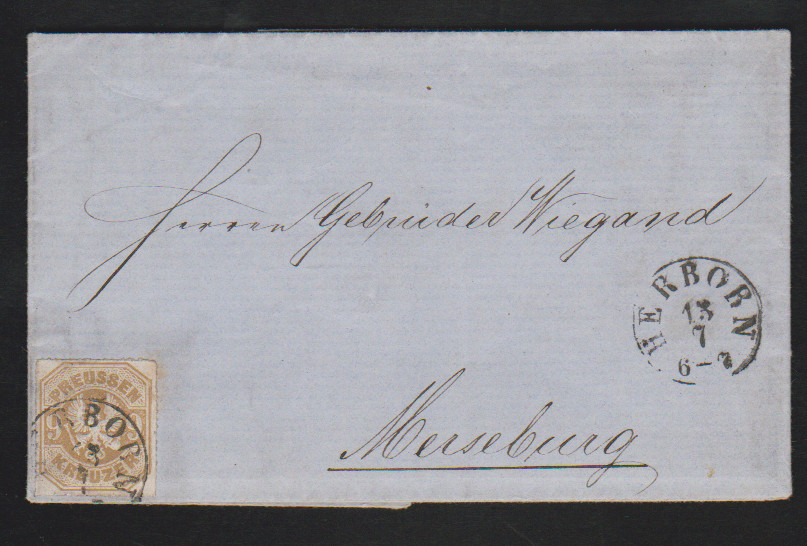 Herren Gebrüder Wiegand
HERBORN
13
7
6-7
Merseburg
PREUSSEN
9
KREUZ
BORN
13
7